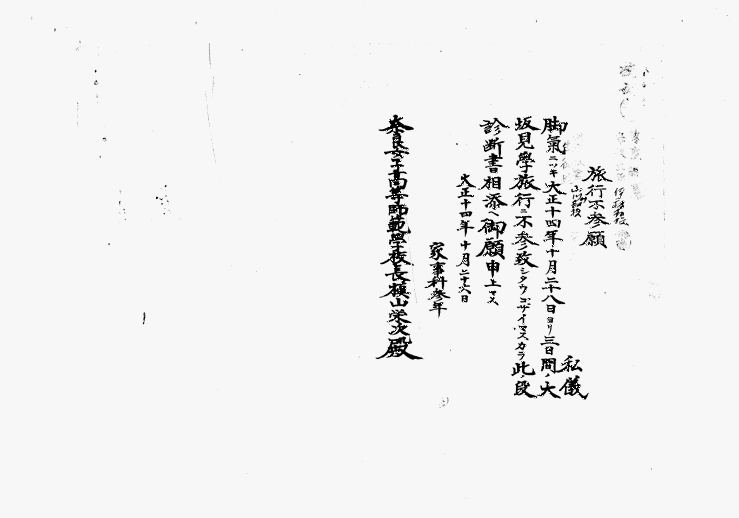 旅行不参願
私儀
脚氣ニツキ大正十四年十月二十八日ヨリ三日間ノ大
坂見學旅行ニ不参致シタウゴザイマスカラ此ノ段
診断書相添ヘ御願申上マス
大正十四年十月二十六日
家事科参年
奈良女子高等師範學校長槇山栄次殿